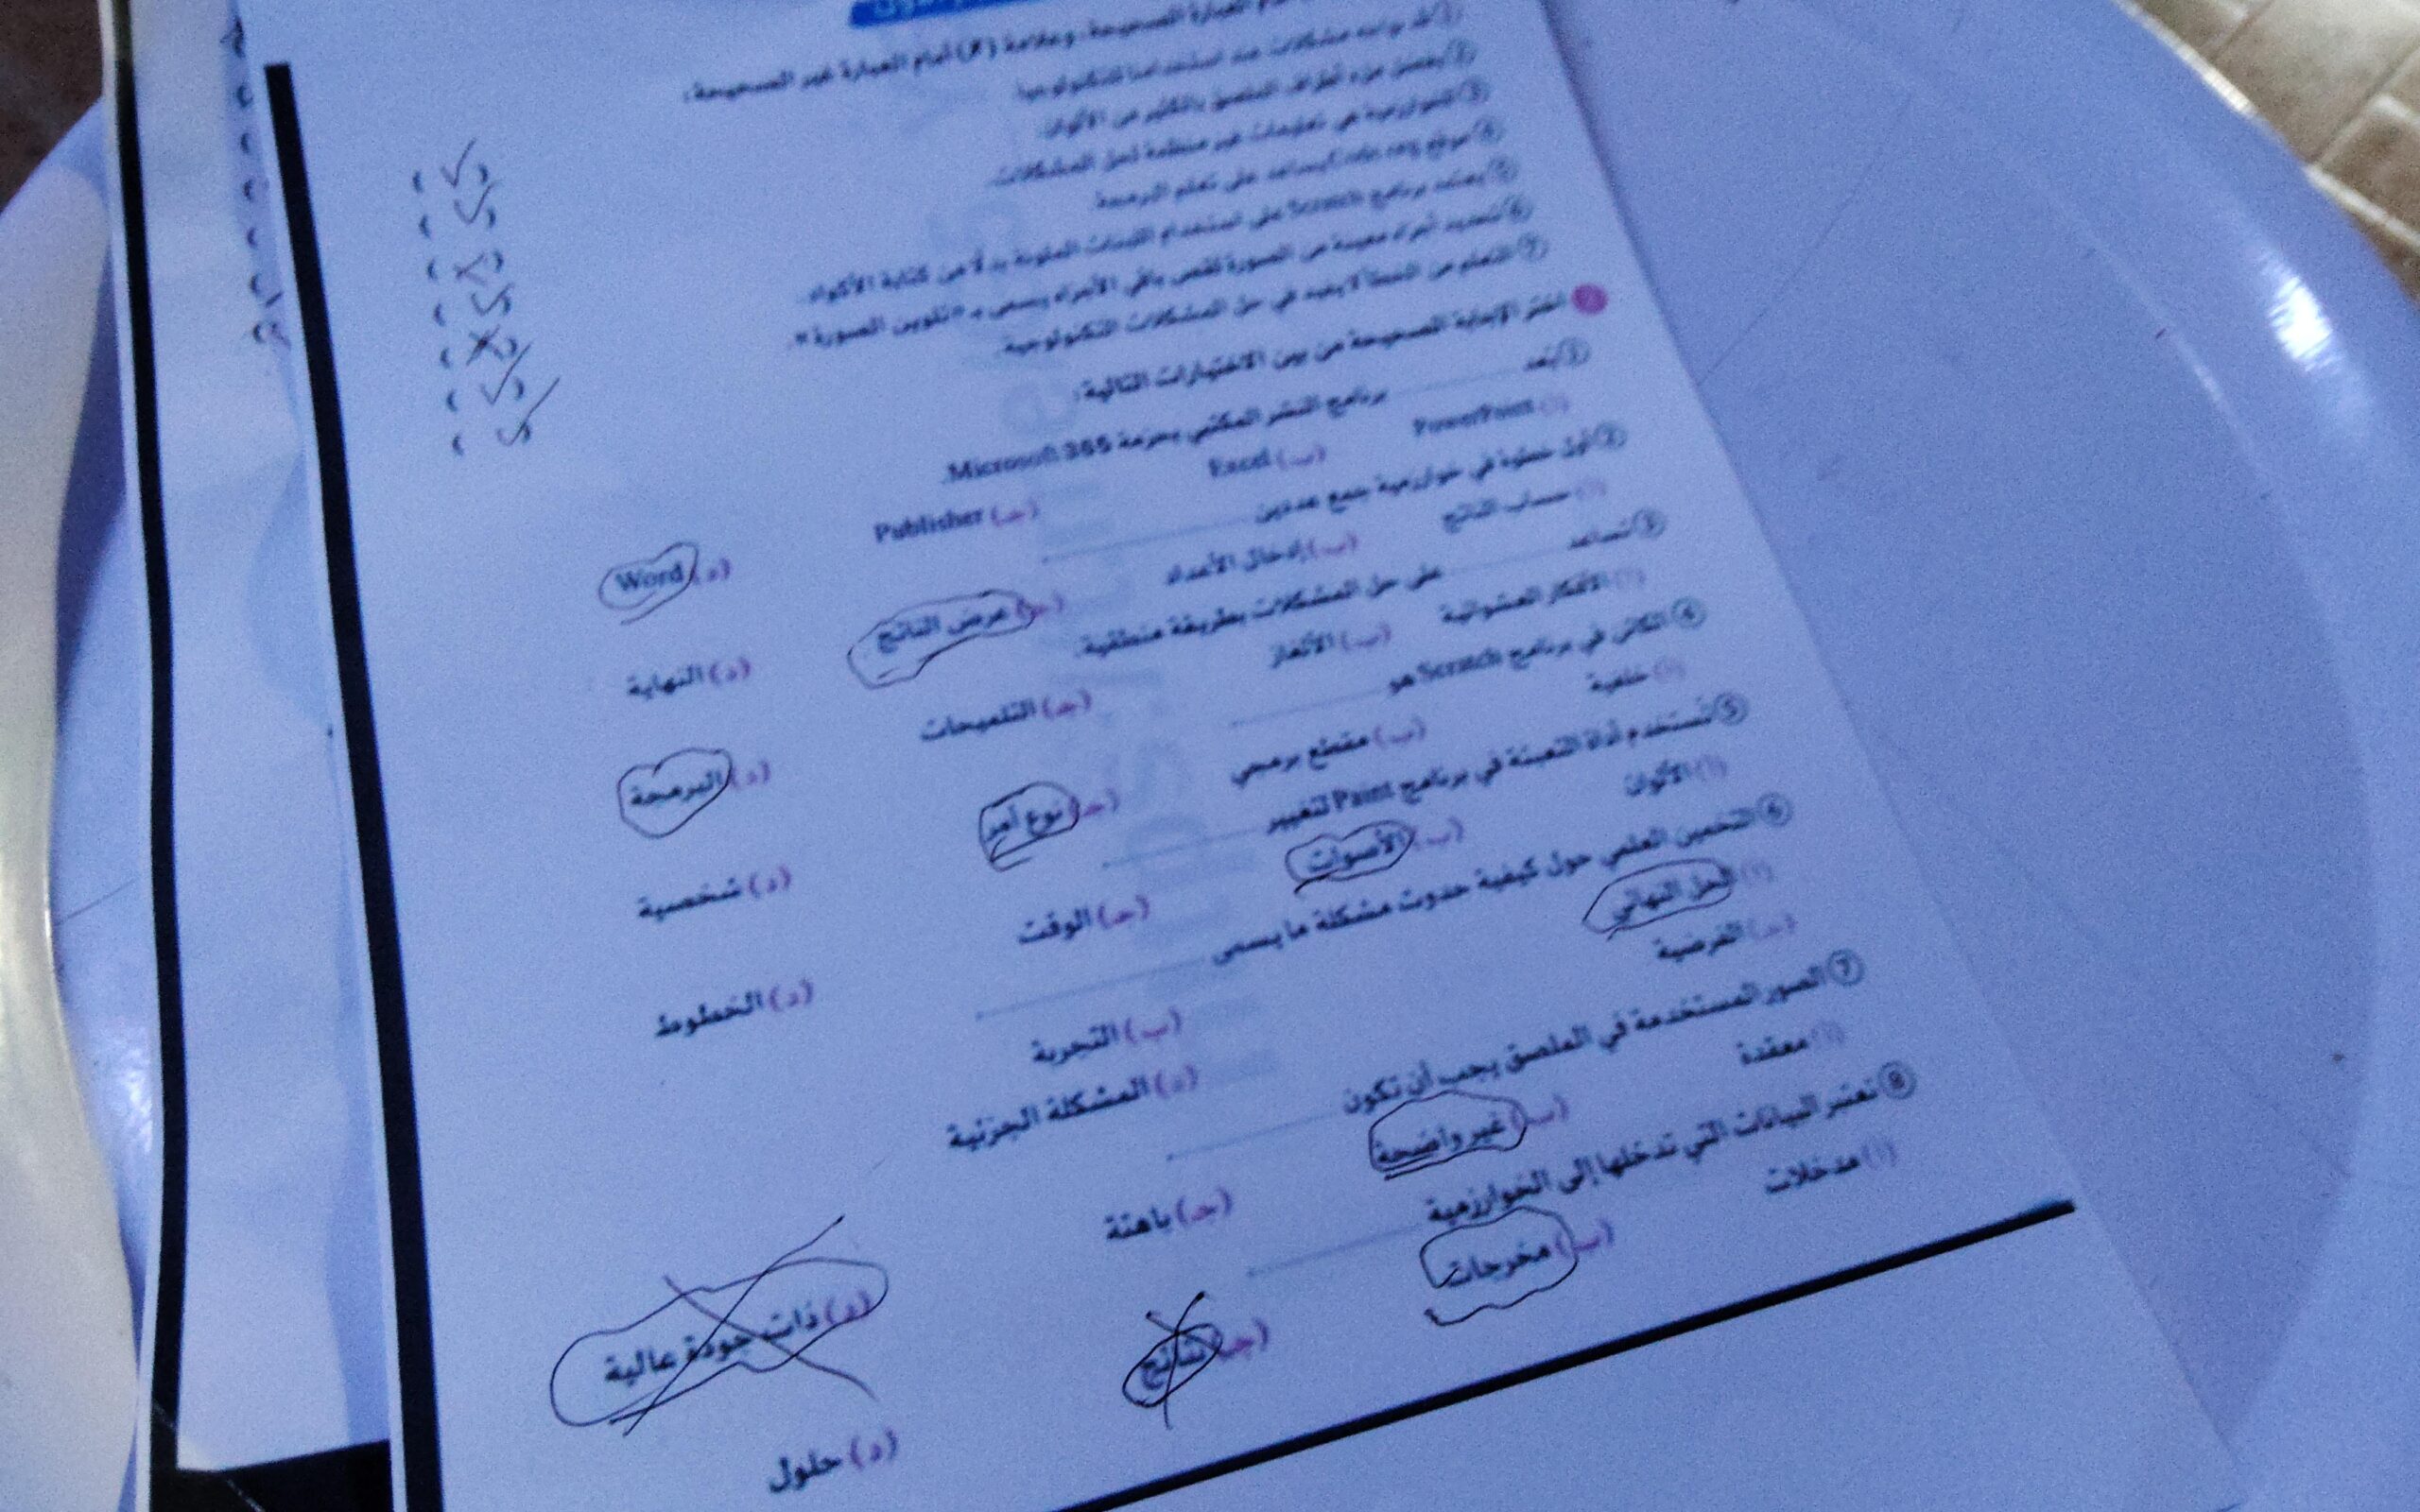 أمام العبارة الصحيحة، وعلامة (✗) أمام العبارة غير الصحيحة:
① قد نواجه مشكلات عند استخدامنا للتكنولوجيا. (✓)
② يفضل ملء أطراف الملصق بالكثير من الألوان. (✓)
③ الخوارزمية هي تعليمات غير منظمة لحل المشكلات. (✗)
④ موقع Code.org يساعد على تعلم البرمجة. (✓)
⑤ يعتمد برنامج Scratch على استخدام اللبنات الملونة بدلًا من كتابة الأكواد. (✗)
⑥ تحديد أجزاء معينة من الصورة لقص باقي الأجزاء يسمى بـ «تلوين الصورة». (✓)
⑦ التعلم من الخطأ لا يفيد في حل المشكلات التكنولوجية. (✓)
2 اختر الإجابة الصحيحة من بين الاختيارات التالية:
① يُعد برنامج النشر المكتبي بحزمة Microsoft 365.
(أ) PowerPoint (ب) Excel (جـ) Publisher (د) Word
② أول خطوة في خوارزمية جمع عددين
(أ) حساب الناتج (ب) إدخال الأعداد (جـ) عرض الناتج (د) النهاية
③ تساعد على حل المشكلات بطريقة منطقية.
(أ) الأفكار العشوائية (ب) الألغاز (جـ) التلميحات (د) البرمجة
④ الكائن في برنامج Scratch هو
(أ) خلفية (ب) مقطع برمجي (جـ) نوع أمر (د) شخصية
⑤ تُستخدم أداة التعبئة في برنامج Paint لتغيير
(أ) الألوان (ب) الأصوات (جـ) الوقت (د) الخطوط
⑥ التخمين العلمي حول كيفية حدوث مشكلة ما يسمى
(أ) الحل النهائي (ب) التجربة
(جـ) الفرضية (د) المشكلة الجزئية
⑦ الصور المستخدمة في الملصق يجب أن تكون
(أ) معقدة (ب) غير واضحة (جـ) باهتة (د) ذات جودة عالية
⑧ تعتبر البيانات التي تدخلها إلى الخوارزمية
(أ) مدخلات (ب) مخرجات (جـ) نتائج (د) حلول